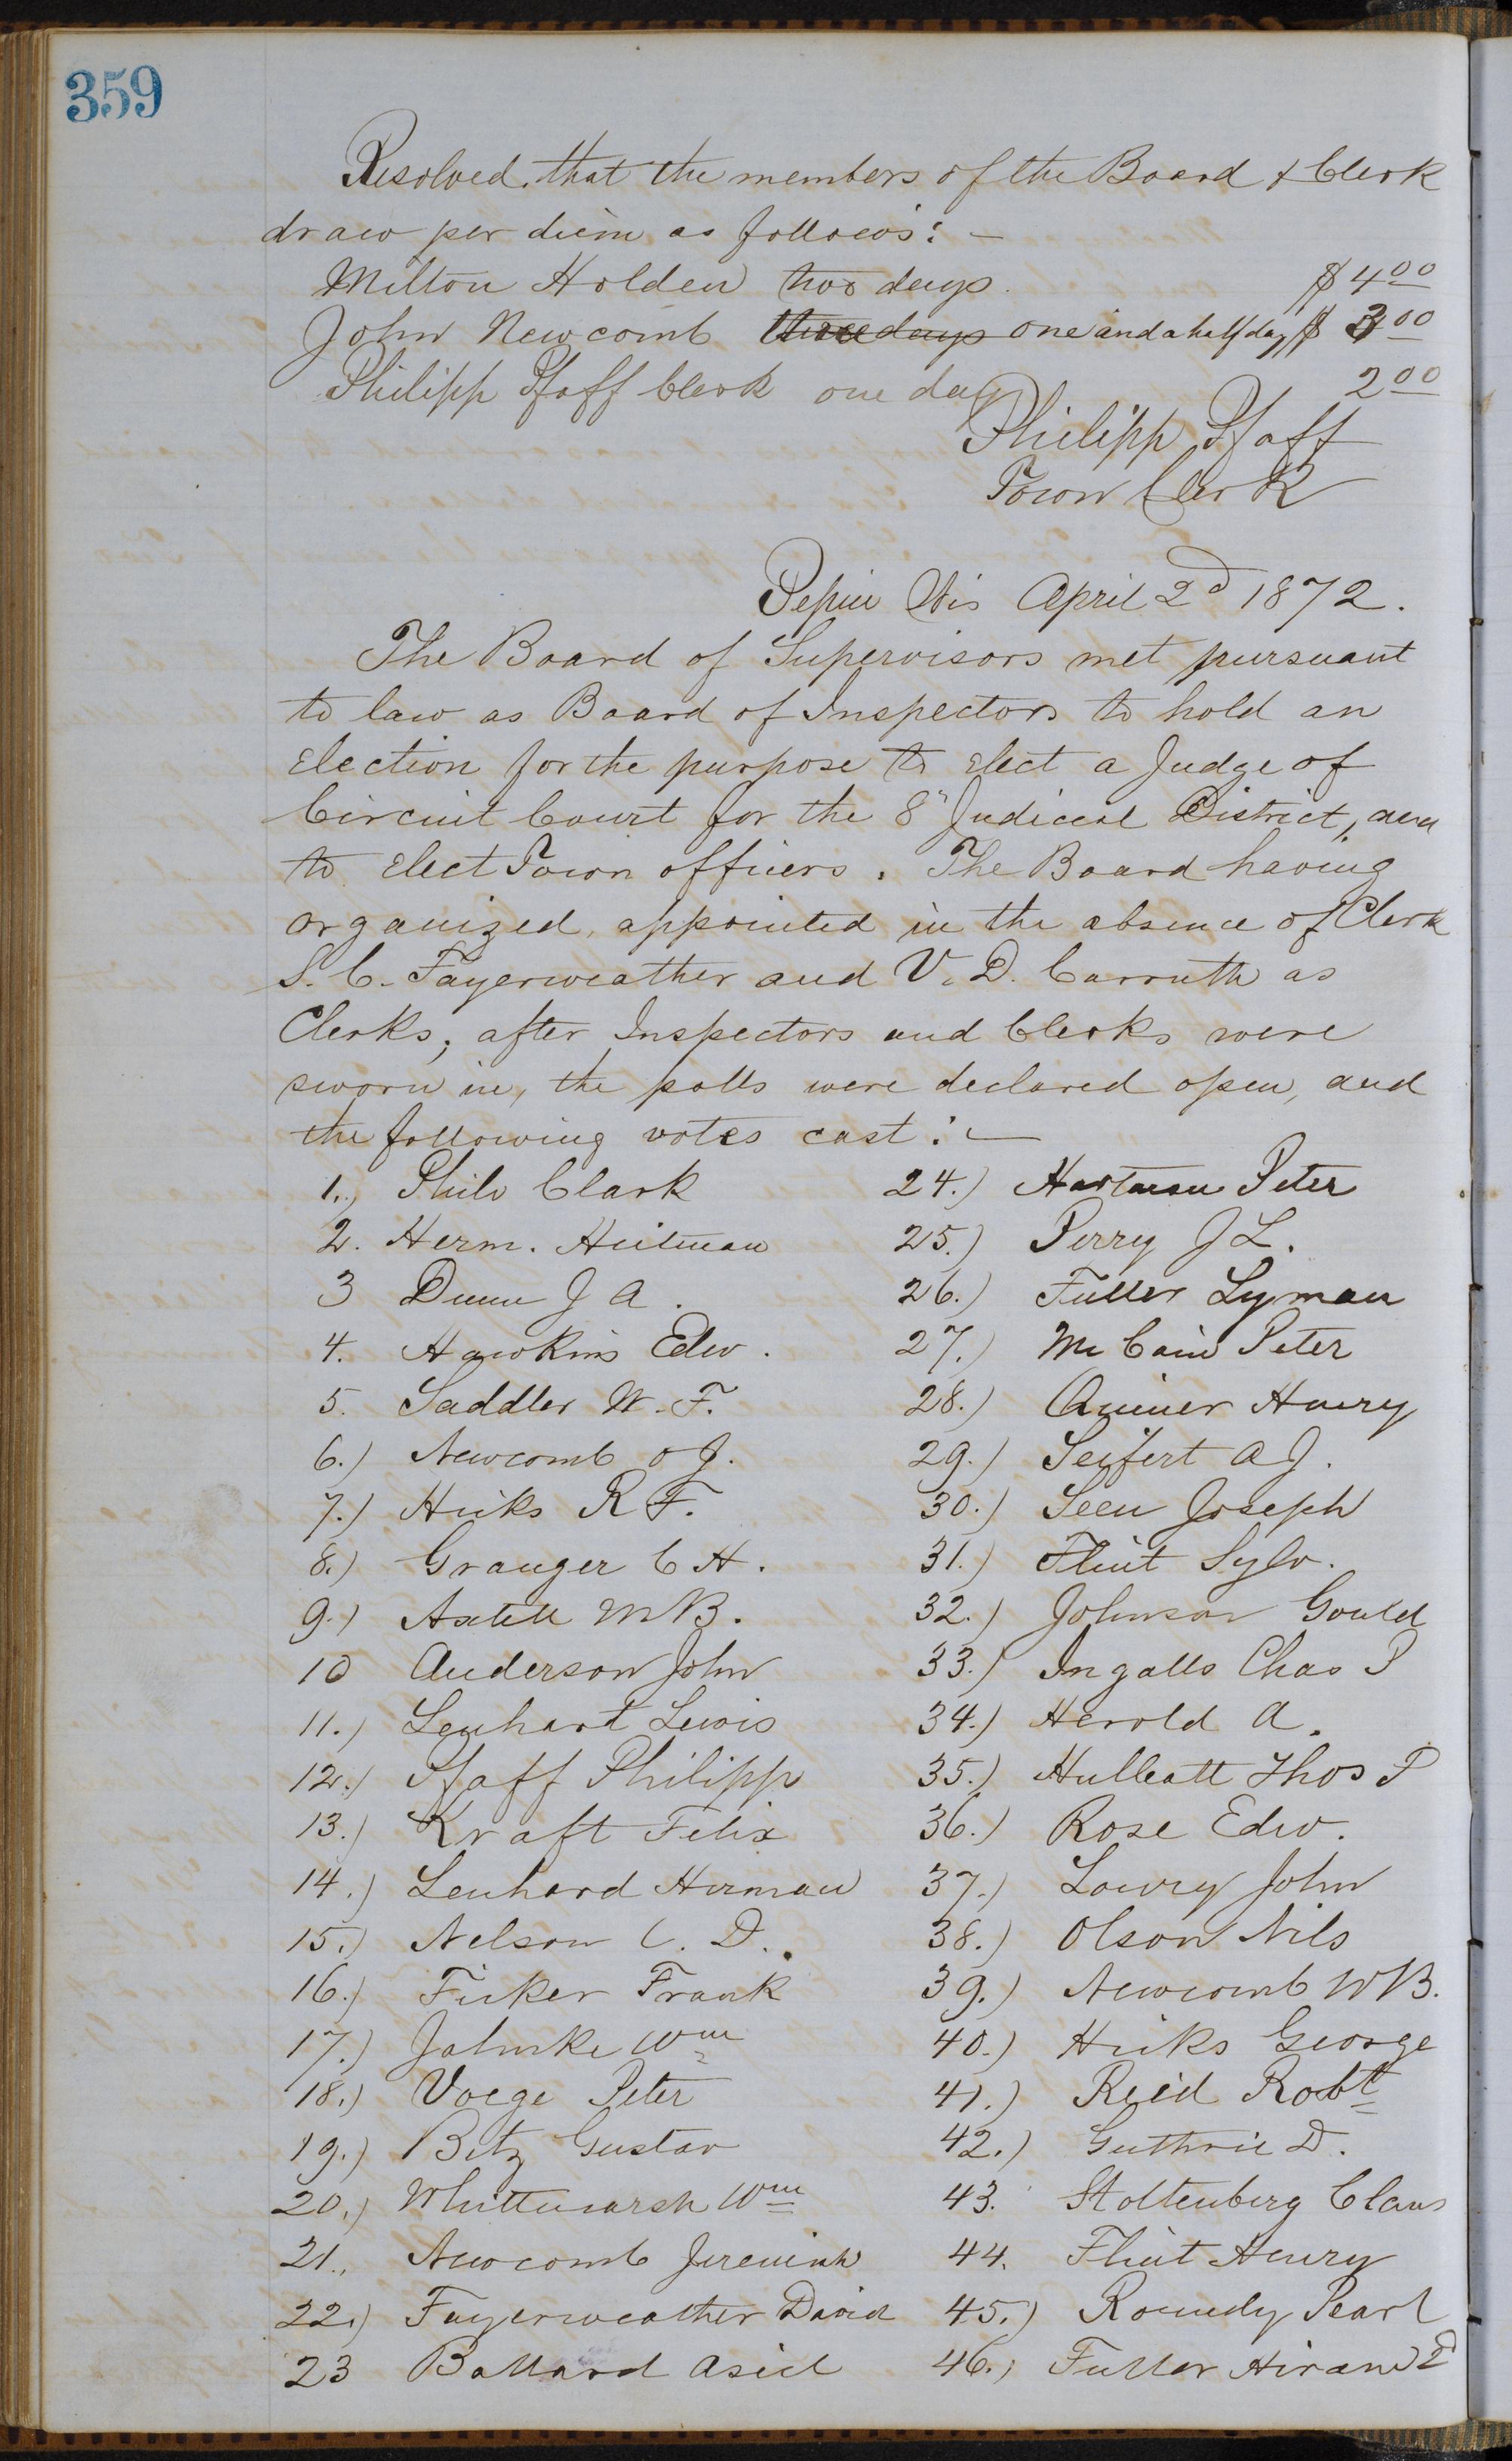 359
Resolved, that the members of the Board & Clerk
draw per diem as follows: —
Milton Holden two days. $ 4 00
John Newcomb three days one and a half day $ 3 00
Philipp Pfaff Clerk one day 2 00
Philipp Pfaff
Town Clerk
Pepin Wis April 2d 1872.
The Board of Supervisors met pursuant
to law as Board of Inspectors to hold an
Election for the purpose to elect a Judge of
Circuit Court for the 8" Judicial District, and
to elect Town officers. The Board having
organized, appointed in the absence of Clerk
S. C. Fayerweather and V. D. Carruth as
Clerks; after Inspectors and Clerks were
sworn in, the polls were declared open, and
the following votes cast: —
1., Philo Clark
2. Herm. Heitman
3 Dunn J A.
4. Hawkins Edw.
5. Saddler W. F.
6.) Newcomb O J.
7.) Hicks R F.
8.) Granger C H.
9.) Axtell M B.
10 Anderson John
11.) Lenhart Lewis
12.) Pfaff Philipp
13.) Kraft Felix
14.) Lenhard Herman
15.) Nelson C. D.
16.) Ficker Frank
17.) Jahnke Wm
18.) Voege Peter
19.) Betz Gustav
20.) Whittmarsh Wm
21., Newcomb Jeremiah
22.) Fayerweather David
23 Ballard Asiel
24.) Hartman Peter
25.) Perry J L.
26.) Fuller Lyman
27.) McCain Peter
28.) Henry
29.) Seifert A J.
30.) Seen Joseph
31.) Flint Sylv.
32.) Johnson Gould
33.) Ingalls Chas P
34.) Herold A.
35.) Hulleatt Thos P
36.) Rose Edw.
37.) Lowry John
38.) Olson Nils
39.) Newcomb W B.
40.) Hicks George
41.) Reid Robt
42.) Guthrie D.
43. Stoltenberg Claus
44. Flint Henry
45.) Roundy Pearl
46.) Fuller Hiram P